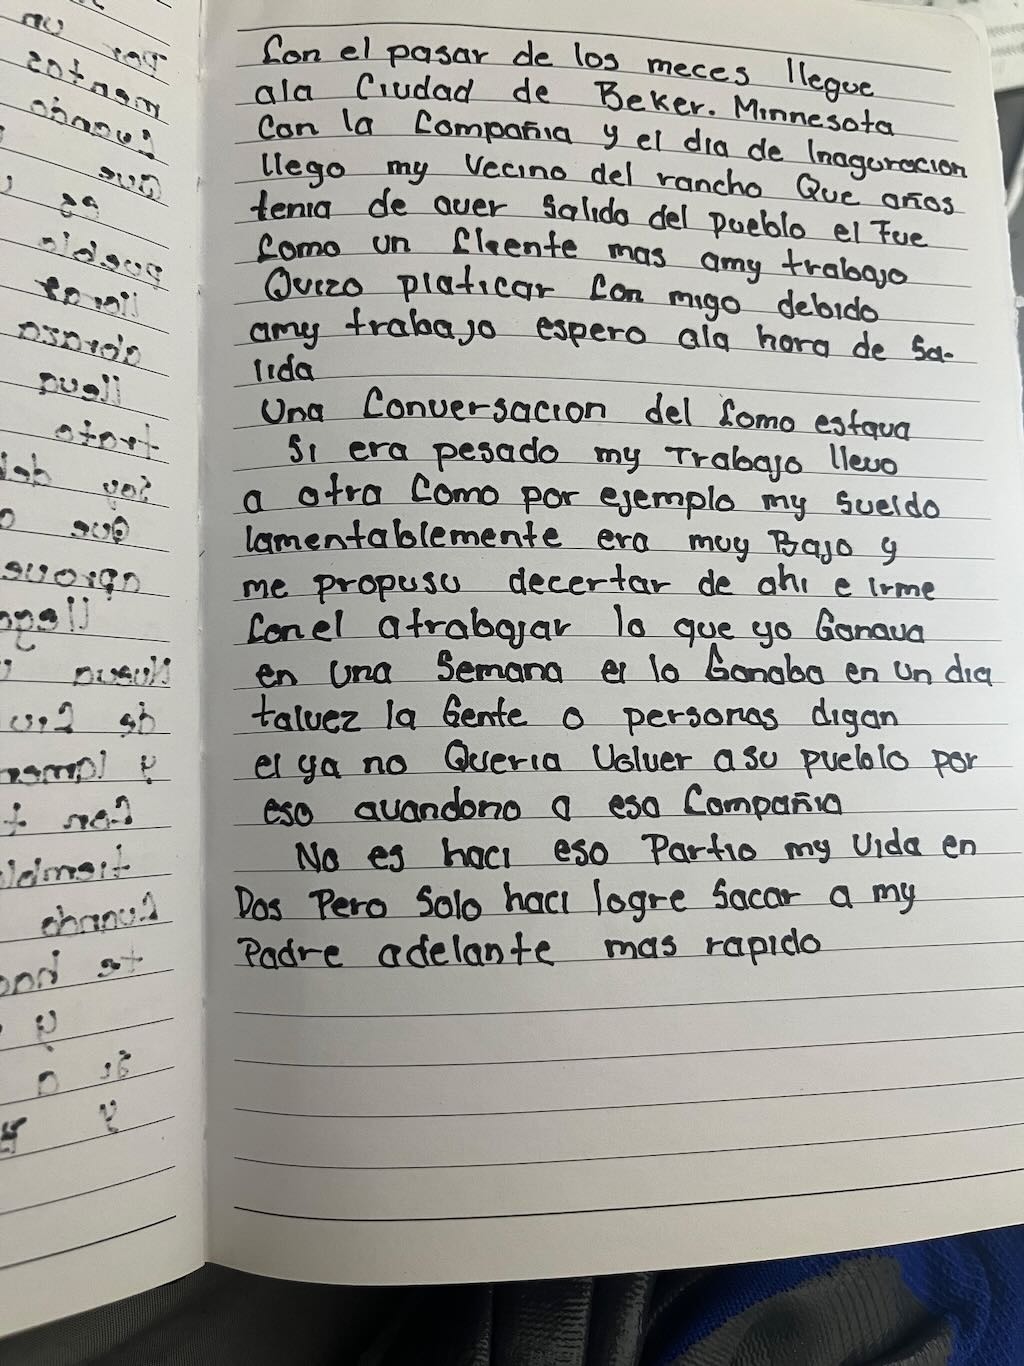 Con el pasar de los meces llegue
ala Ciudad de Beker. Minnesota
Con la Compañia y el dia de Inaguracion
llego my Vecino del rancho Que años
tenia de aver Salido del pueblo el Fue
Como un Cliente mas amy trabajo
Quizo platicar Con migo debido
amy trabajo espero ala hora de Sa-
lida
Una Conversacion del Como estava
Si era pesado my Trabajo llevo
a otra Como por ejemplo my Sueldo
lamentablemente era muy Bajo y
me propuso decertar de ahi e irme
Con el atrabajar lo que yo Ganava
en Una Semana el lo Ganaba en un dia
talvez la Gente o personas digan
el ya no Queria Volver asu pueblo por
eso avandono a esa Compañia
No es haci eso Partio my Vida en
Dos Pero Solo haci logre Sacar a my
Padre adelante mas rapido